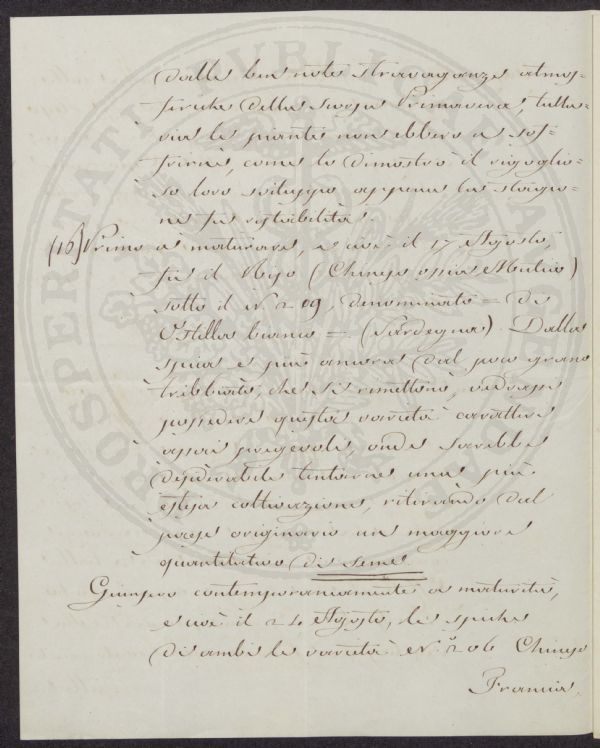 dalle ben note stravaganze atmos=
feriche della scorsa Primavera, tutta=
via le piante non ebbero a sof=
frirne, come lo dimostrò il rigoglio=
so loro sviluppo appena la stagio=
ne fu ristabilita.
(16) Primo a maturare, e cioè il 17 Agosto,
fu il Riso (Chinese ossia Mutico)
sotto il N. 209, denominato = di
Ostella bianco =. (Sardegna). Dalla
spica e più ancora dal poco grano
trebbiato, che si rimettono, vedrassi
possedere questa varietà carattere
assai pregevole, onde sarebbe
desiderabile tentarne una più
estesa coltivazione, ritirando dal
paese originario un maggiore
quantitativo di seme
Giunsero contemporaneamente a maturità,
e cioè il 24 Agosto, le spiche
di ambi le varietà N.º 206 Chinese
Francia,
PROSPERITATI PVBLICAE